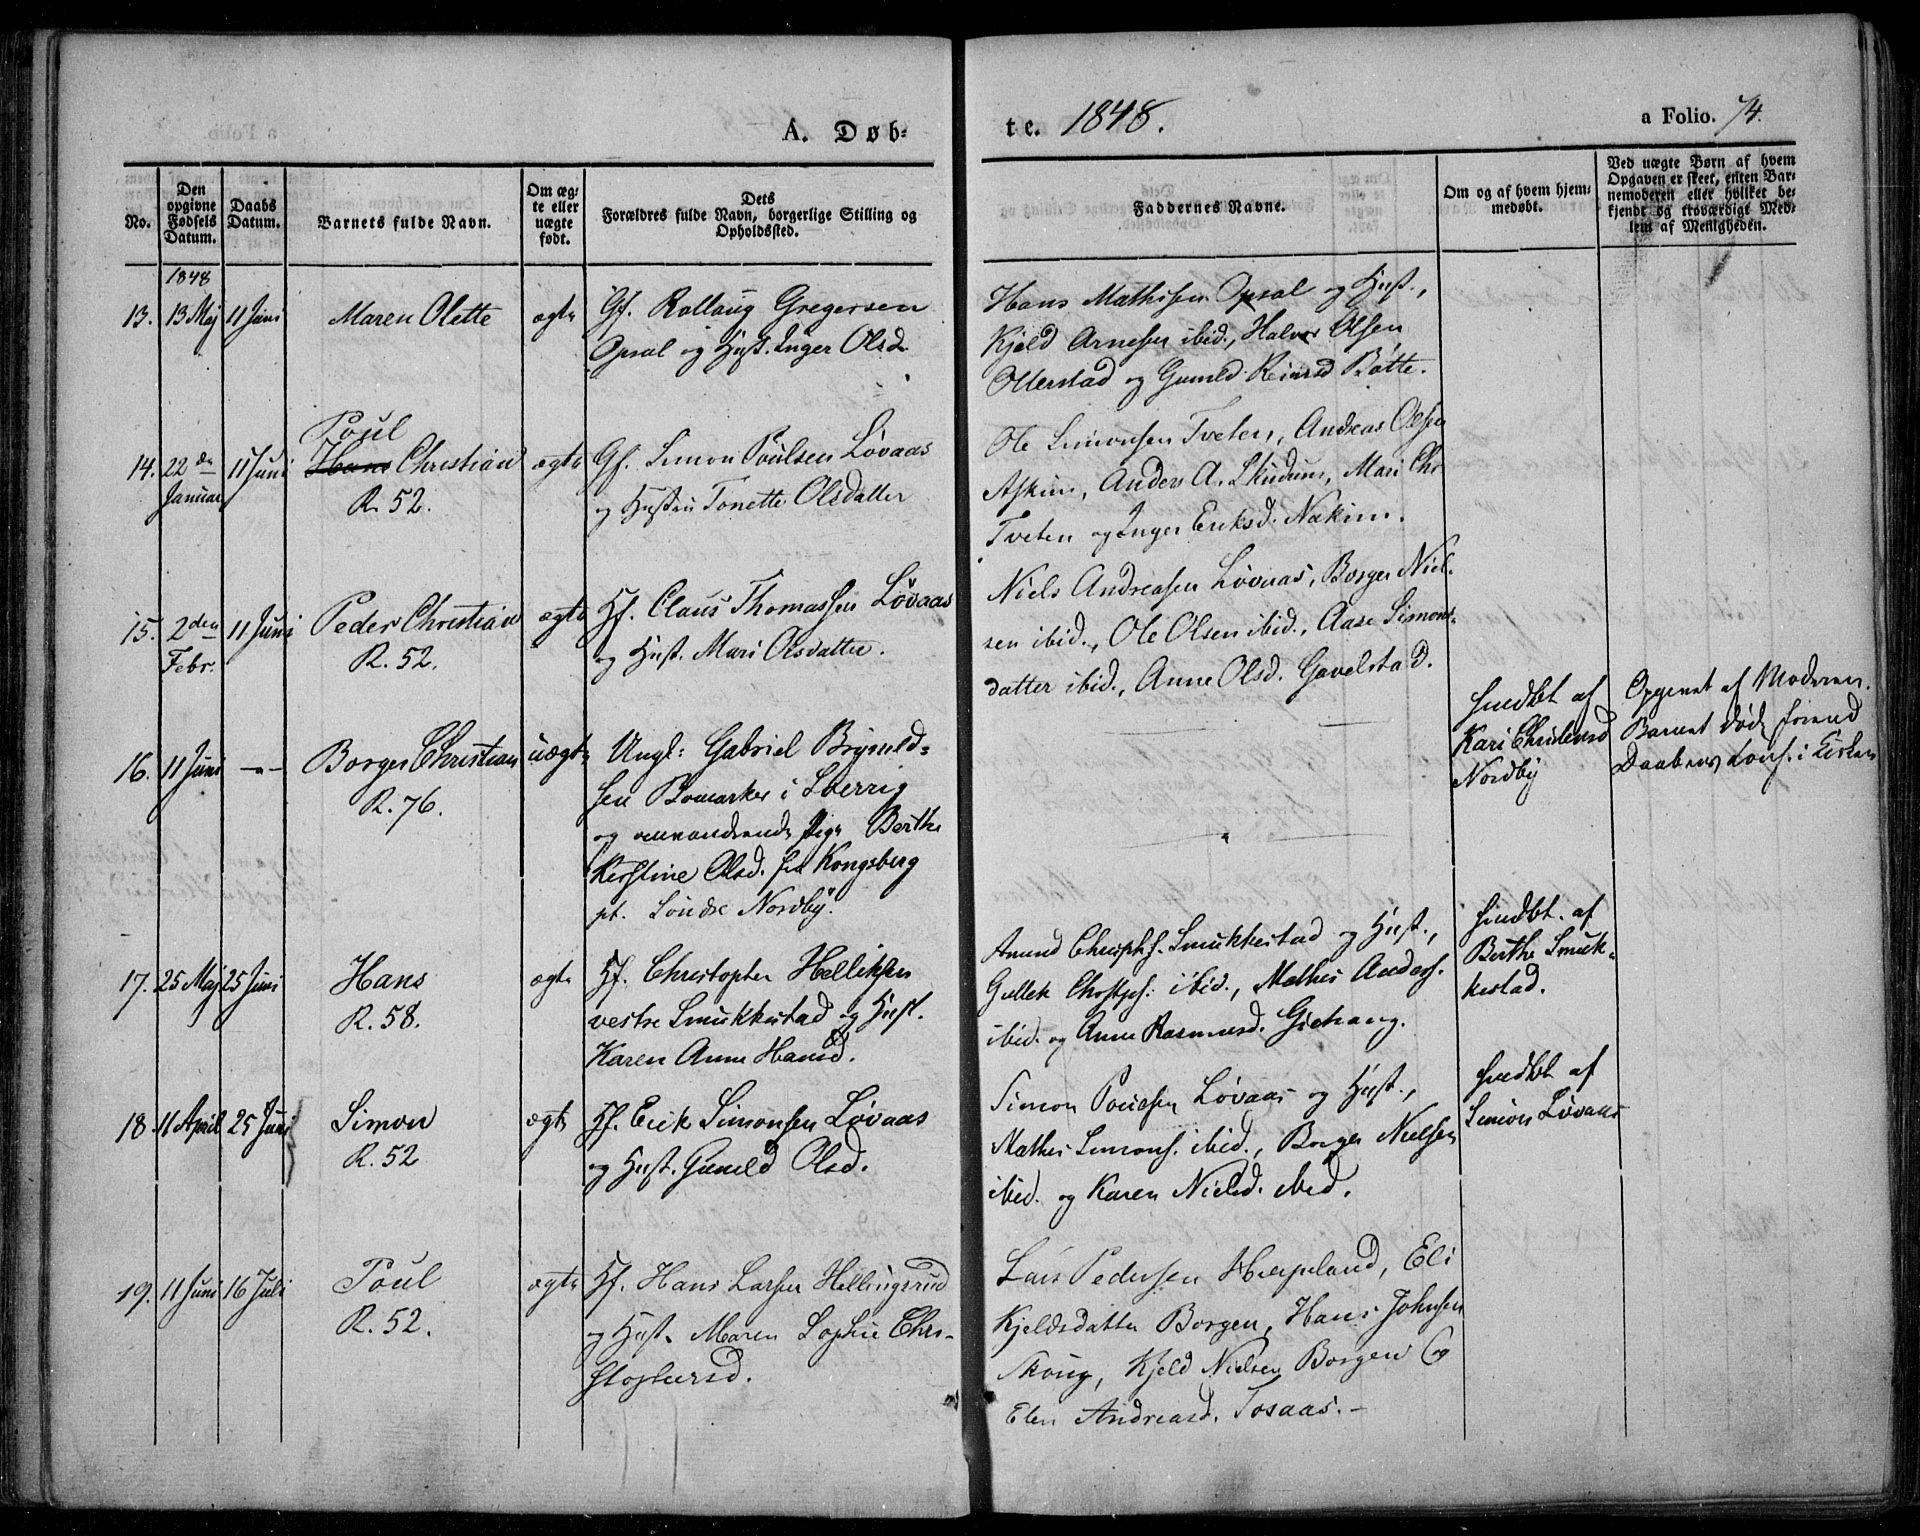 A. Døb-
te. 1848.
a Folio. 74.
No.
Den opgivne Fødsels Datum.
Daabs Datum.
Barnets fulde Navn.
Om ægte eller uægte født.
Dets Forældres fulde Navn, borgerlige Stilling og Opholdssted.
Faddernes Navne.
Om og af hvem hjemmedøbt.
Ved uægte Børn af hvem
Opgaven er skeet, enten Bar-
nemoderen eller hvilket be-
kjendt og troværdigt Med-
lem af Menigheden.
1848
13. 13 Maj 11 Juni Maren Olette ægte
Gf. Rollaug Gregersen
Opsal og Hust. Inger Olsd.
Hans Mathisen Opsal og Hust.,
Kjeld Arnesen ibid., Halvor Olsen
Ollerstad og Gunild Reiersd Bøtte.
14. 22de Januar 11 Juni
Poul
Hans Christian ægte
R. 52.
Gf. Simon Poulsen Løvaas
og Hustru Tonette Olsdatter
Ole Simonsen Tveten, Andreas Olsen
Askim, Anders A. Skudum, Mari Chr
Tveten og Inger Eriksd. Nakim.
15. 2den Febr. 11 Juni Peder Christian ægte
R. 52.
Hf. Claus Thomassen Løvaas
og Hust. Mari Olsdatter.
Niels Andreasen Løvaas, Borger Niel-
sen ibid., Ole Olsen ibid., Aase Simons-
datter ibid., Anne Olsd. Gavelstad.
16. 11 Juni -"- Borger Christian uægte
R. 76.
Ungk: Gabriel Brynild-
sen Bomarker i Sverrig
og omvandrende Pige Berthe
Kirstine Olsd. fra Kongsberg
pt. Søndre Nordby.
hmdbt af
Kari Christensd
Nordby
Opgivet af Moderen.
Barnet døde forend
Daabens Conf. i Kirken
17. 25 Maj 25 Juni Hans ægte
R. 58.
Hf. Christopher Helliksen
vestre Smukkestad og Hust.
Karen Anne Hansd.
Amund Christphs. Smukkestad og Hust.,
Gullek Chrstphs. ibid., Mathis Anders.
ibid. og Anne Rasmusd. Gishaug.
hmdbt. af
Berthe Smuk-
kestad.
18. 11 April 25 Juni Simon ægte
R. 52
Hf. Erik Simonsen Løvaas
og Hust. Gunild Olsd.
Simon Poulsen Løvaas og Hust.,
Mathis Simons. ibid., Borger Nielsen
ibid. og Karen Nielsd. ibid.
hmdbt af
Simon Løvaas
19. 11 Juni 16 Juli Poul ægte
R. 52.
Hf. Hans Larsen Hellingsrud
og Hust. Maren Sophie Chri-
stophersd.
Lars Pedersen Hverpeland, Eli
Kjeldsdatter Borgen, Hans Johnsen
Skoug, Kjeld Nielsen Borgen og
Elen Andreasd. Tosaas.-